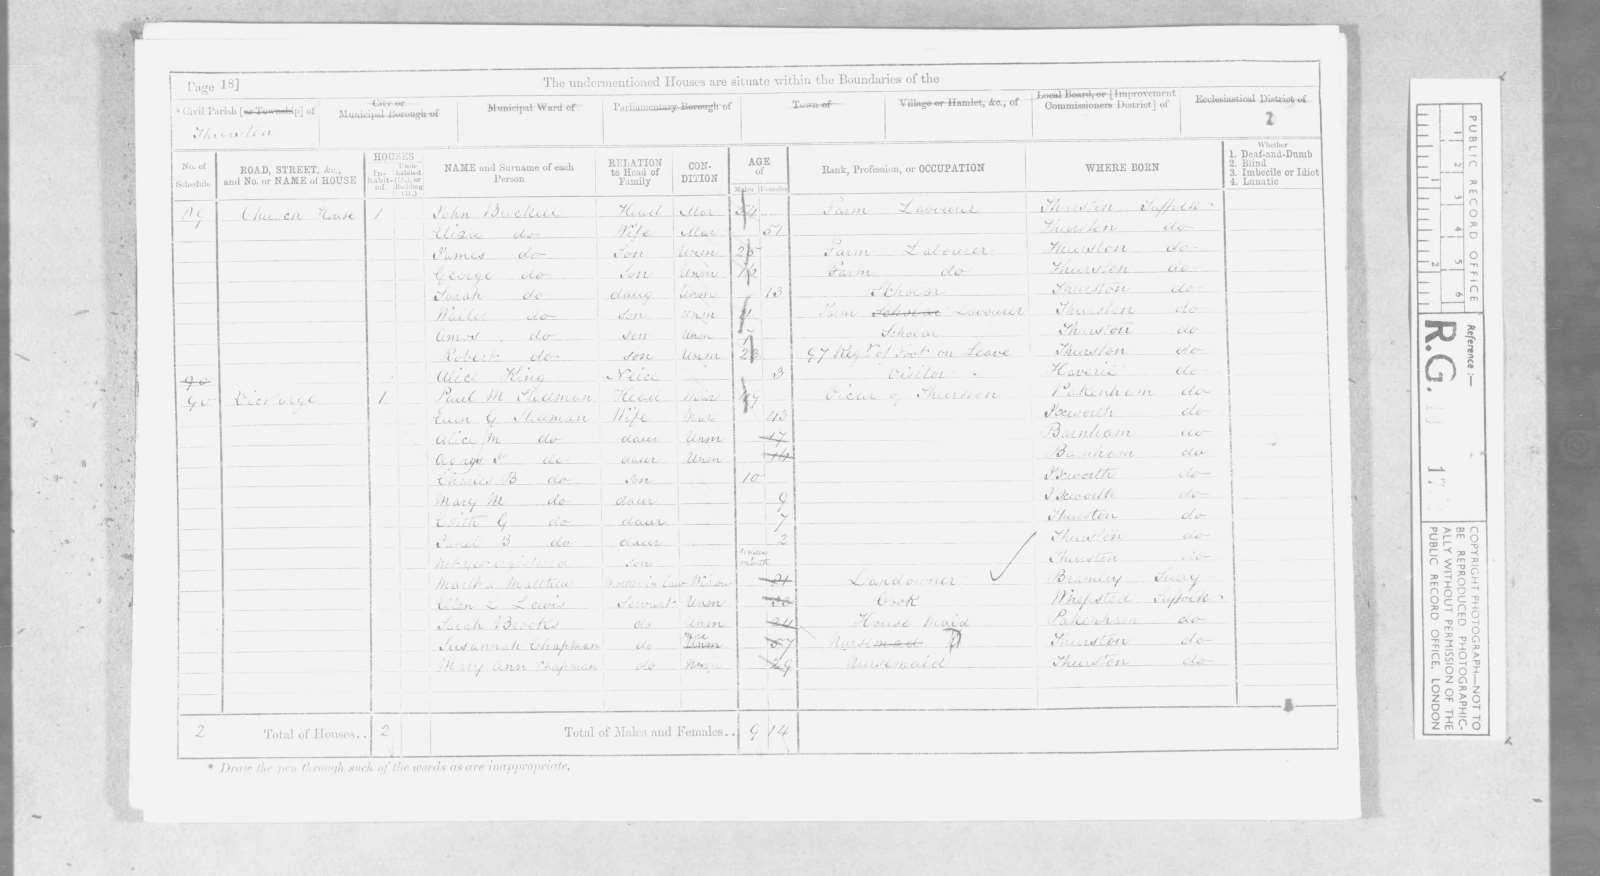 Page 18]
The undermentioned Houses are situate within the Boundaries of the
* Civil Parish [or Township] of
City or Municipal Borough of
Municipal Ward of
Parliamentary Borough of
Town of
Village or Hamlet, &c., of
Local Board, or [Improvement Commissioners District] of
Ecclesiastical District of
Thurston
2
No. of Schedule
ROAD, STREET, &c., and No. or NAME of HOUSE
HOUSES
In-habit-ed
Unin-habited (U.), or Building (B.)
NAME and Surname of each Person
RELATION to Head of Family
CON-DITION
AGE of
Males
Females
Rank, Profession, or OCCUPATION
WHERE BORN
Whether
1. Deaf-and-Dumb
2. Blind
3. Imbecile or Idiot
4. Lunatic
Church House 1 John Head Mar 54 Farm Labourer Thurston Suffolk
Eliza do Wife Mar 51 Thurston do
James do Son Unm 25 Farm Labourer Thurston do
George do Son Unm Farm do Thurston do
Sarah do daug Unm 13 Scholar Thurston do
do son Unm Farm Scholar Labourer Thurston do
Amos do son Unm Scholar Thurston do
Robert do son Unm 23 97 Regt of Foot on Leave Thurston do
Alice King Niece 3 Visitor do
90
90 Vicarage 1 Paul M Stedman Head 49 Vicar of Thurston Pakenham do
G Stedman Wife 43 Ixworth do
Alice M do daur Unm 17 Barnham do
Agnes do daur Unm 14 Barnham do
Charles B do son 10 Ixworth do
Mary M do daur 9 Ixworth do
Edith G do daur 7 Thurston do
B do daur 2 Thurston do
son Thurston do
Martha Landowner Bramley Surry
Ellen L Lewis Servant Unm Cook Whepsted Suffolk
Sarah Brooks do Unm 24 House Maid Pakenham do
Susannah Chapman do Unm 57 Nursemaid Thurston do
Mary Ann Chapman do Unm 29 Nursemaid Thurston do
2 Total of Houses.. 2 Total of Males and Females.. 9 14
* Draw the pen through such of the words as are inappropriate.
PUBLIC RECORD OFFICE
1 2 3 4 5 6
1 2
Reference :—
R.G. 17
COPYRIGHT PHOTOGRAPH—NOT TO BE REPRODUCED PHOTOGRAPHIC-ALLY WITHOUT PERMISSION OF THE PUBLIC RECORD OFFICE, LONDON